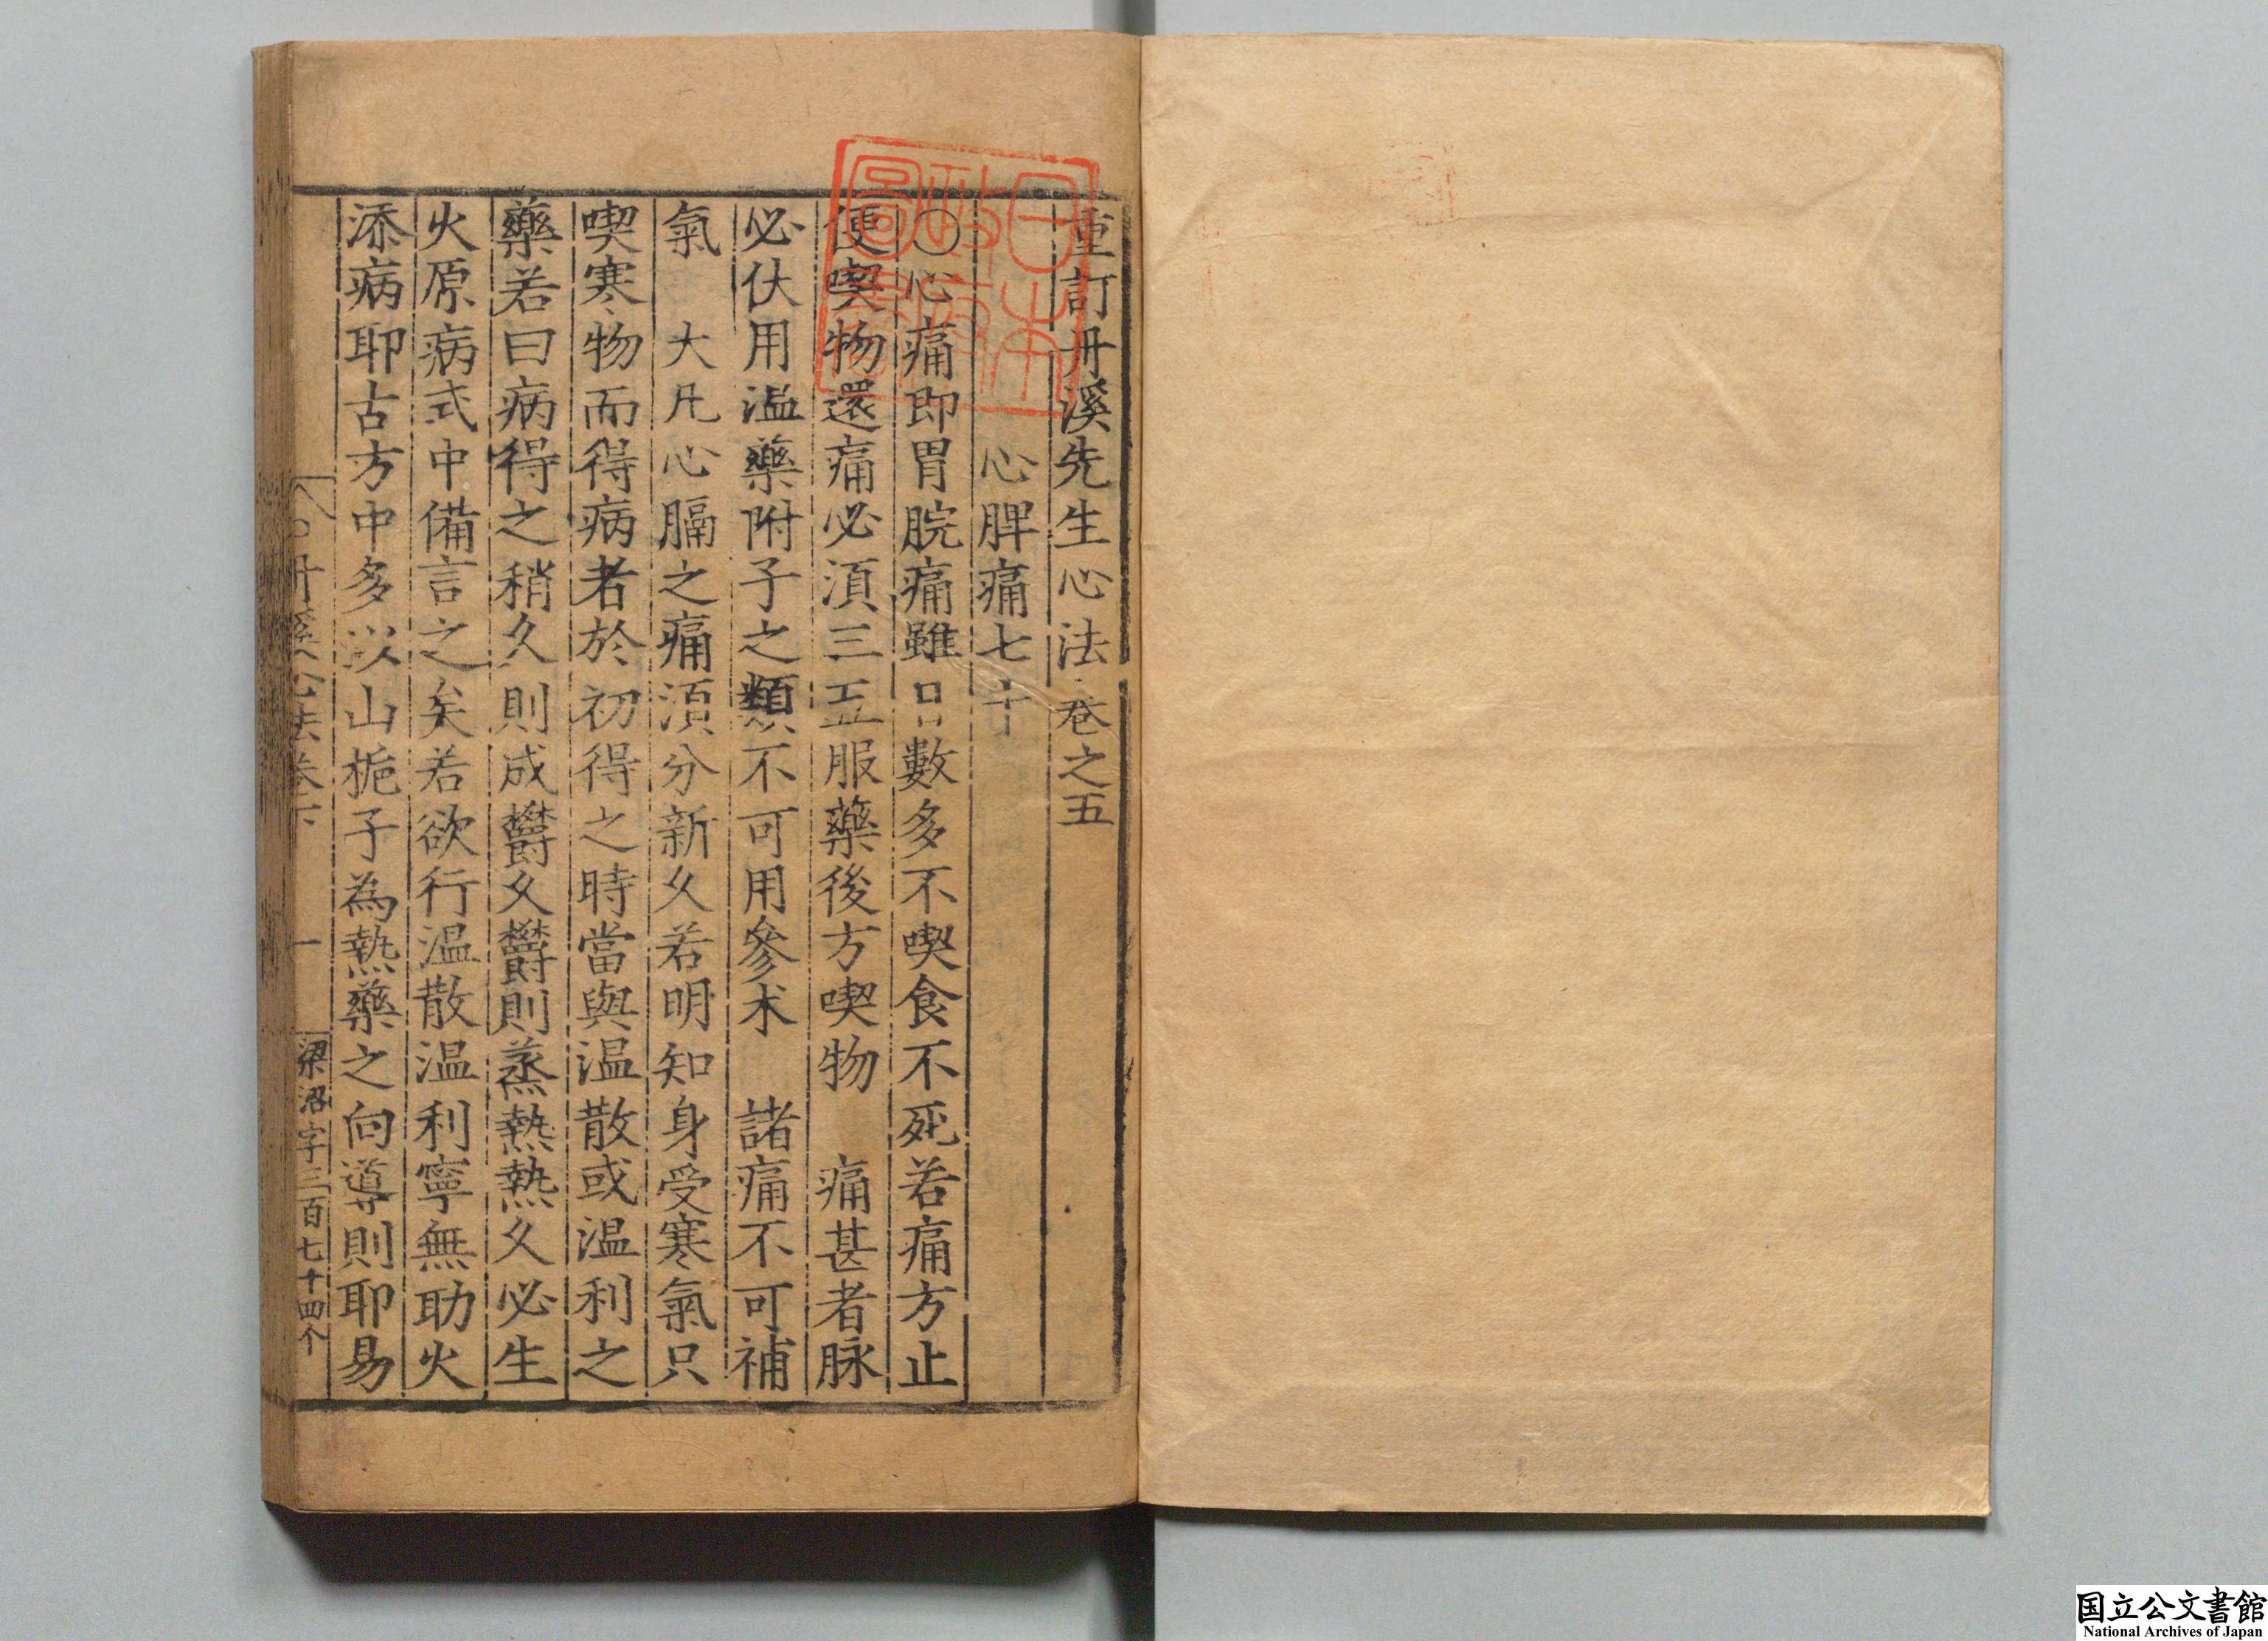 重訂丹溪先生心法卷之五
心脾痛七十
○心痛即胃脘痛雖日數多不喫食不死若痛方止
便喫物還痛必須三五服藥後方喫物　痛甚者脉
必伏用温藥附子之類不可用參术　諸痛不可補
氣　大凡心膈之痛須分新久若明知身受寒氣只
喫寒物而得病者於初得之時當與温散或温利之
藥若曰病得之稍久則成欝久欝則蒸熱熱久必生
火原病式中備言之矣若欲行温散温利寧無助火
添病耶古方中多以山梔子為熱藥之向導則耶易
丹溪心法卷下
一
梁沼字三百七十四个
日本政府圖書
国立公文書館
National Archives of Japan